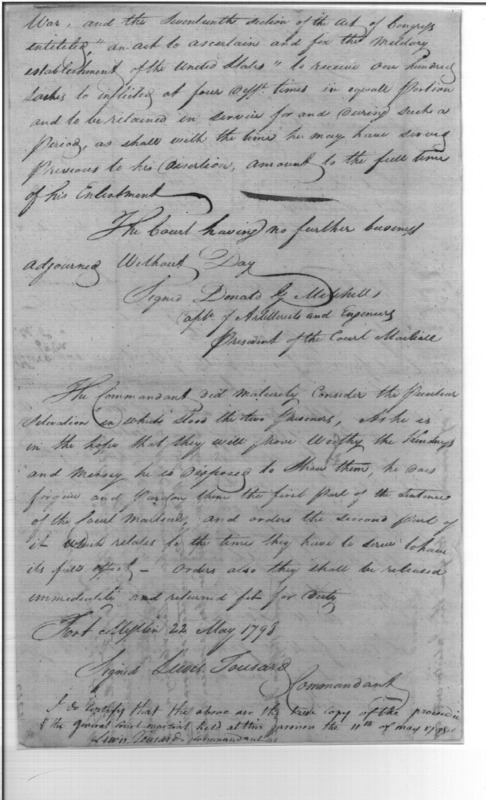 War, and the Seventeenth section of the act of Congress
entitled, "an act to ascertain and fix the military
establishment of the United States" to receive one hundred
Lashes to inflicted at four Deff.t times in equall Portion
and to be retained in service for and During such a
Period, as shall with the time he may have serving
Previous to his Desertion, amount to the full time
of his Enlistment
The Court having no further business
adjourned Without Day
Signed Donald G Mitchell
Capt. of Artillerists and Engeneers
President of the Court Martiall
The Commandant did maturely Consider the Peculiar
Situation in which stood the two Prisoners, As he is
in the hopes that they will prove Worthy the kindness
and Mercey he is Disposed to Shew them, he does
forgive and Pardon them the first part of the Sentence
of the Court martial, and orders the second part of
it which relates to the times they have to serve to have
its full effect — orders also they shall be released
immediately and returned fit for duty
Fort Mifflin 22 May 1798
Signed Lewis Tousard
Commandant
I do Certify that the above are the true Copy of the
of the general Court martial held at this the 11th of may 1798
Lewis Tousard Commandant